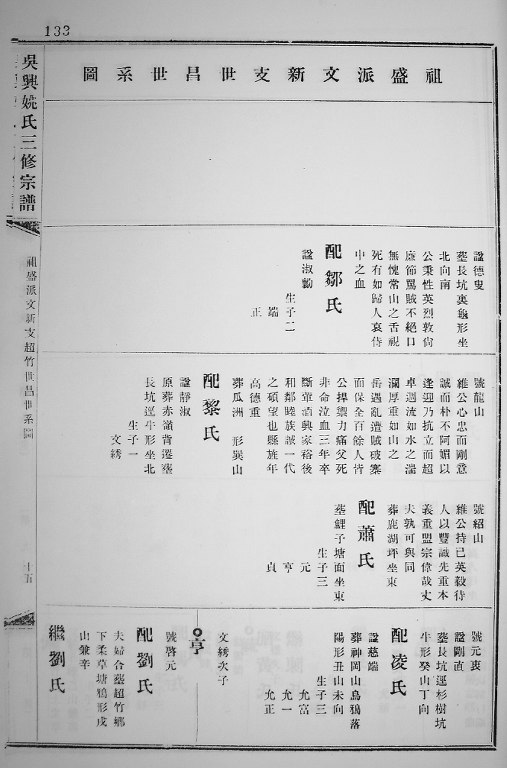 133
祖盛派文新支世昌世系圖
吳興姚氏三修宗譜
祖盛派文新支超竹世昌世系圖
十五
諡德叟
墓長坑裏龜形坐
北向南
公秉性英烈敦尙
廉節罵賊不絕口
無愧常山之舌視
死有如歸人哀侍
中之血
配鄒氏
諡淑勤
生子二
端
正
號龍山
維公心忠而剛意
誠而朴不阿媚以
逢迎乃抗立而超
卓週流如水之湍
瀾厚重如山之
岳遇亂遭賊破寨
而保全百餘人皆
公捍禦力痛父死
非命泣血三年卒
斷葷酒興家裕後
和鄰睦族誠一代
之碩望也縣旌年
高德重
葬瓜洲 形巽山
配黎氏
諡靜淑
原葬赤嶺背遷墓
長坑運牛形坐北
生子一
文綉
號紹山
維公持已英毅待
人以豐誠先重本
義重盟宗偉哉丈
夫孰可與同
葬鹿湖坪坐東
配蕭氏
墓鯉子塘面坐東
生子三
元
亨
貞
號元衷
諡剛直
墓長坑運杉樹坑
牛形癸山丁向
配凌氏
諡慈端
葬神岡山烏鴉落
陽形丑山未向
生子三
允富
允一
允正
文綉次子
亨
號啓元
配劉氏
夫婦合墓超竹鄉
下柔草塘鴉形戍
山兼辛
繼劉氏